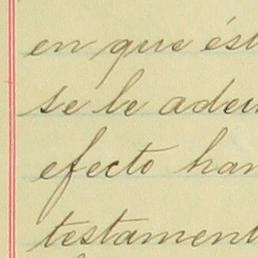 en que ést
se le adeu
efecto han
testament